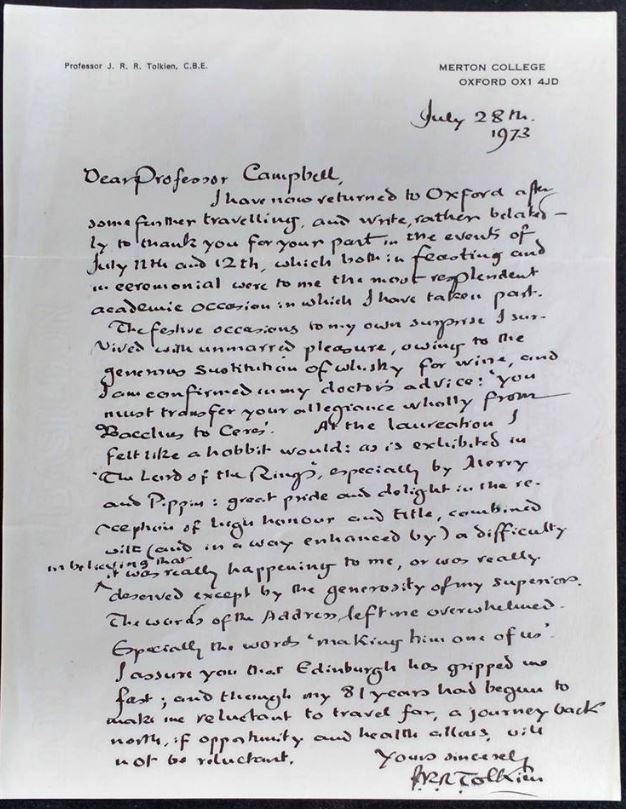 Professor J. R. R. Tolkien, C.B.E.
MERTON COLLEGE
OXFORD OX1 4JD
July 28th.
1973
Dear Professor Campbell,
I have now returned to Oxford after
some further travelling, and write, rather belated-
ly to thank you for your part in the events of
July 11th and 12th, which both in feasting and
in ceremonial were to me the most resplendent
academic occasion in which I have taken part.
The festive occasions to my own surprise I sur-
vived with unmarred pleasure, owing to the
generous sustitution of whisky for wine, and
I am confirmed in my doctor's advice: 'you
must transfer your allegiance wholly from
Bacchus to Ceres'. At the laureation I
felt like a hobbit would: as is exhibited in
'The Lord of the Rings', especially by Merry
and Pippin: great pride and delight in the re-
ception of high honour and title, combined
with (and in a way enhanced by) a difficulty
in believing that
it was really happening to me, or was really
deserved except by the generosity of my superiors.
The words of the Address, left me overwhelmed.
Especially the words 'making him one of us'.
I assure you that Edinburgh has gripped me
fast; and though my 81 years had begun to
make me reluctant to travel far, a journey back
north, if opportunity and health allows, will
not be reluctant.
Yours sincerely
J.R.R. Tolkien